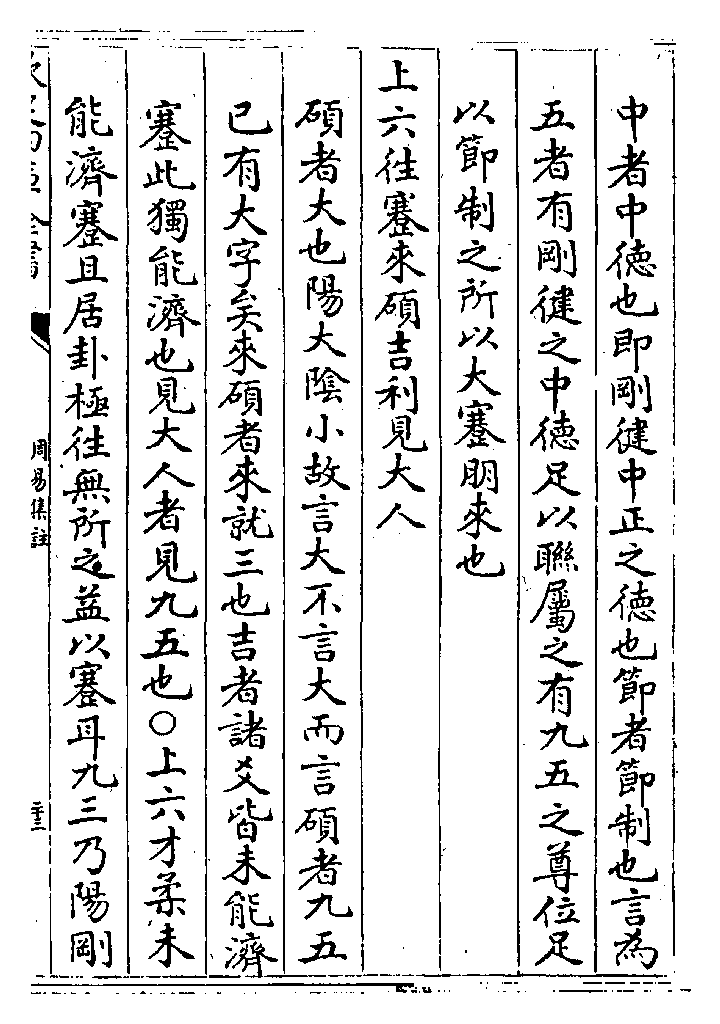 中者中徳也即剛健中正之徳也節者節制也言為
五者有剛健之中徳足以聯屬之有九五之尊位足
以節制之所以大蹇朋來也
上六往蹇來碩吉利見大人
碩者大也陽大陰小故言大不言大而言碩者九五
已有大字矣來碩者來就三也吉者諸爻皆未能濟
蹇此獨能濟也見大人者見九五也○上六才柔未
能濟蹇且居卦極往無所之益以蹇耳九三乃陽剛
周易集註
二十三